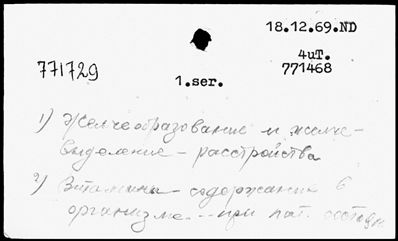 18.12.69.ND
4uT.
771729
771468
1.ser.
1) Желчеобразование и желче-
выделение - расстройства
2) Витамины - содержание в
организме... при пат. состоян.